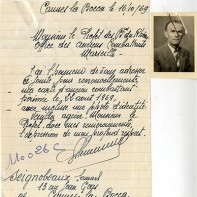 Cannes la Bocca le 16/10/69
Monsieur le Préfet des B. du Rhône
Office des Anciens Combattants
Marseille
J'ai l'honneur de vous adresser
ci-joint, pour renouvellement,
ma carte d'ancien combattant
périmée le 22 août 1969,
avec incluse une photo d'identité
Veuillez agréer, Monsieur le
Préfet, avec mes remerciements,
l'expression de mon profond respect.
Seignobeaux
13 rue Jean
06 Cannes la Bocca